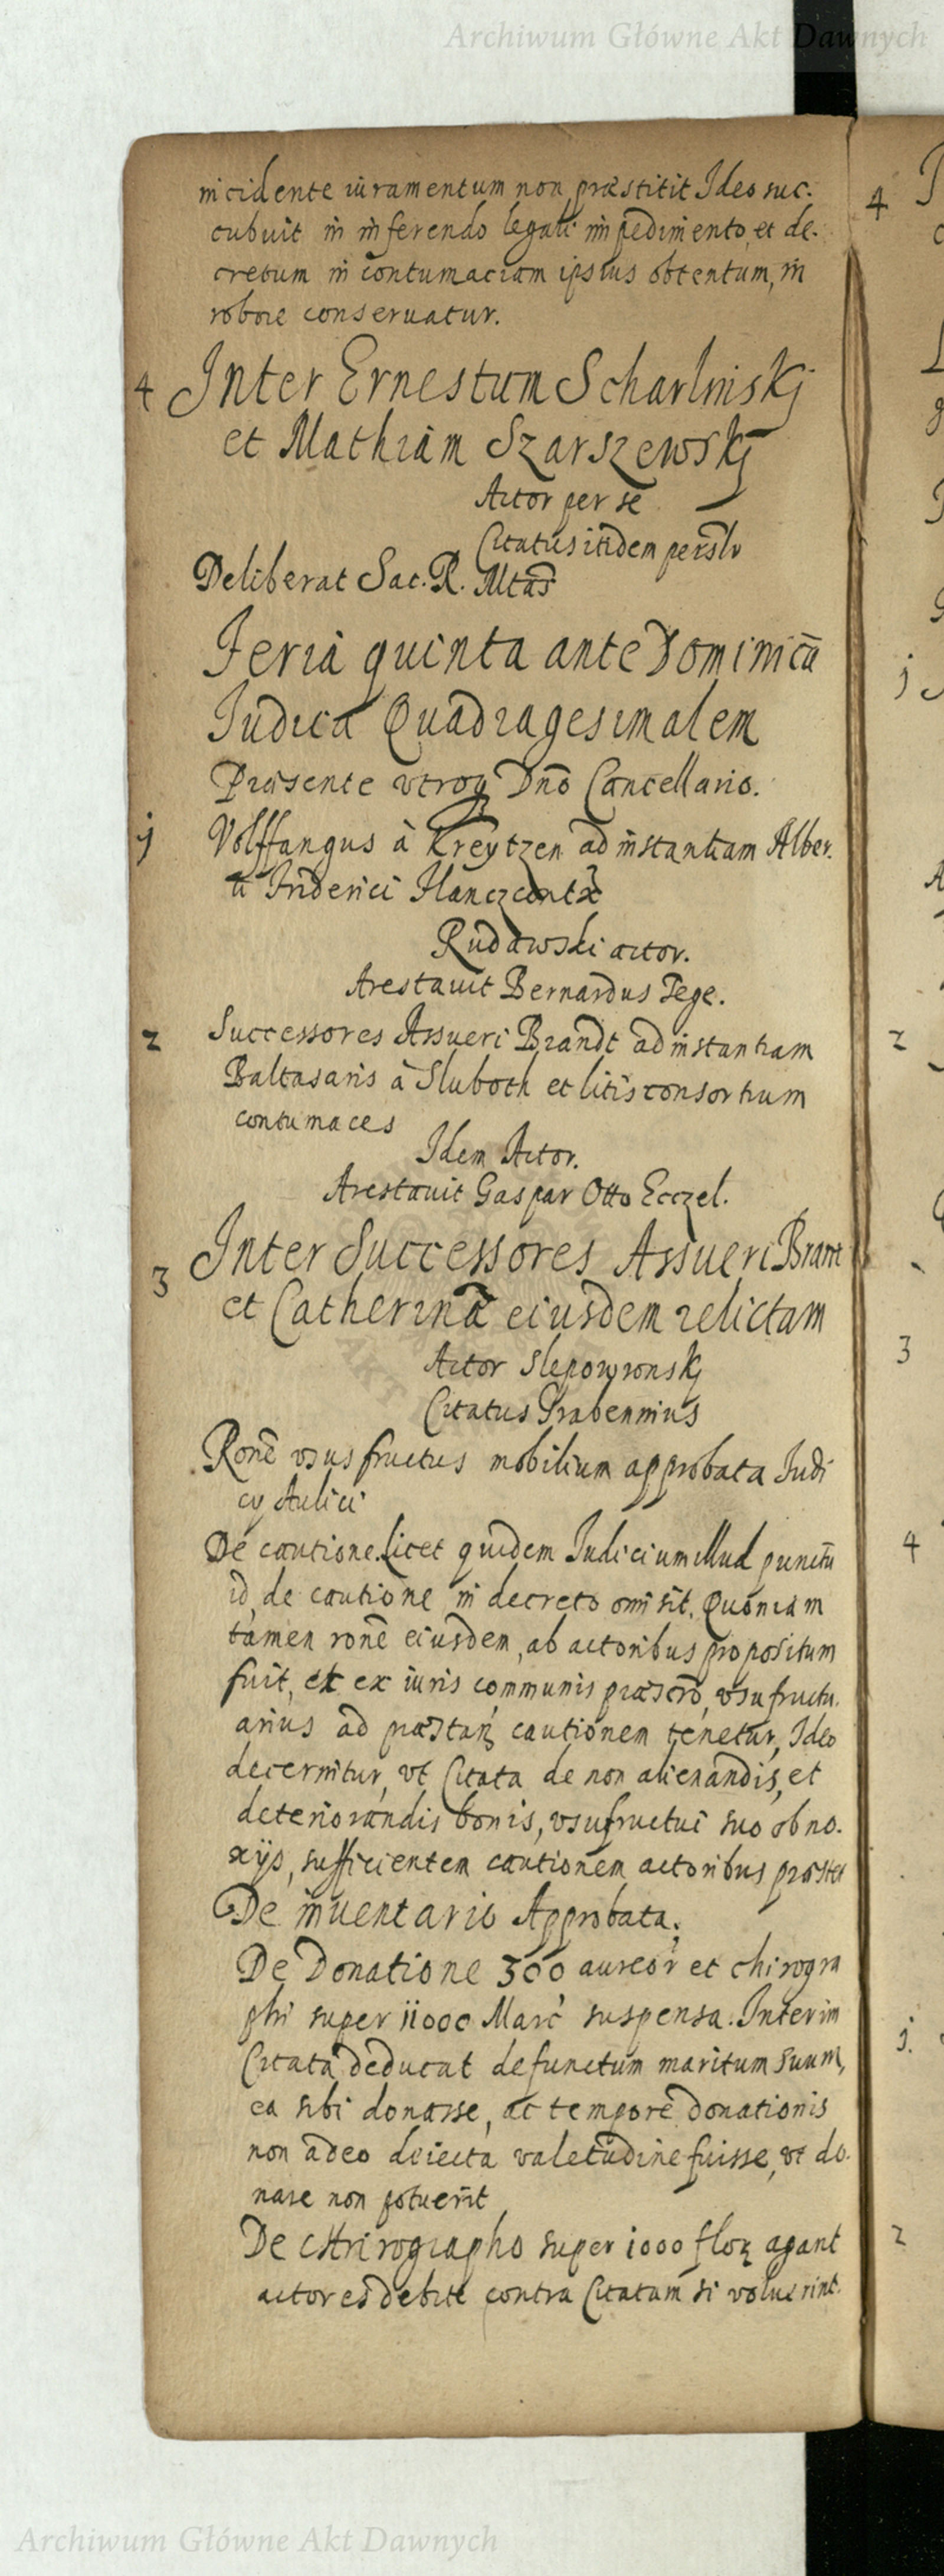 Archiwum Główne Akt Dawnych
incidente iuramentum non præstitit Ideo suc-
cubuit in inferendo legali impedimento, et de-
cretum in contumaciam ipsius obtentum, in
robore conseruatur.
4 Inter Ernestum Scharlinskj
et Mathiam Szarszewskj
Actor per se
Citatus itidem
Deliberat Sac. R. Mtas
Feria quinta ante Dominicā
Iudica Quadragesimalem
Præsente vtroq Dno Cancellario.
j Volffangus à Kreytzen ad instantiam Alber-
ti Friderici
Rudawski actor.
Arestauit Bernardus Tege.
2 Successores Assueri Brandt ad instantiam
Baltasaris à Sluboth et litis consortium
contumaces
Idem Actor.
Arestauit Gaspar Otto Ecczel.
3 Inter Successores Assueri Brant
et Catherinā eiusdem relictam
Actor Slepowronskj
Citatus Grabennius
Rone vsusfructus mobilium approbata Iudi
cy Aulici
De cautione. Licet quidem Iudicium illud punctū
id, de cautione in decreto omisit. Quoniam
tamen rone eiusdem, ab actoribus propositum
fuit, et ex iuris communis præscro, vsufructu-
arius ad præstan cautionem tenetur, Ideo
decernitur, vt Citata de non alienandis, et
deteriorandis bonis, vsufructui suo obno-
xijs, sufficientem cautionem actoribus præstet
De inuentario Approbata.
De Donatione 300 aureor et chirogra
phi super 11000 Marc suspensa. Interim
Citata deducat defunctum maritum suum,
ea sibi donasse, ac tempore donationis
non adeo deiecta valetudine fuisse, vt do-
nare non potuerit
De chirographo super 1000 flor agant
actores debite contra Citatam si voluerint.
4
j
2
3
4
j.
2
Archiwum Główne Akt Dawnych